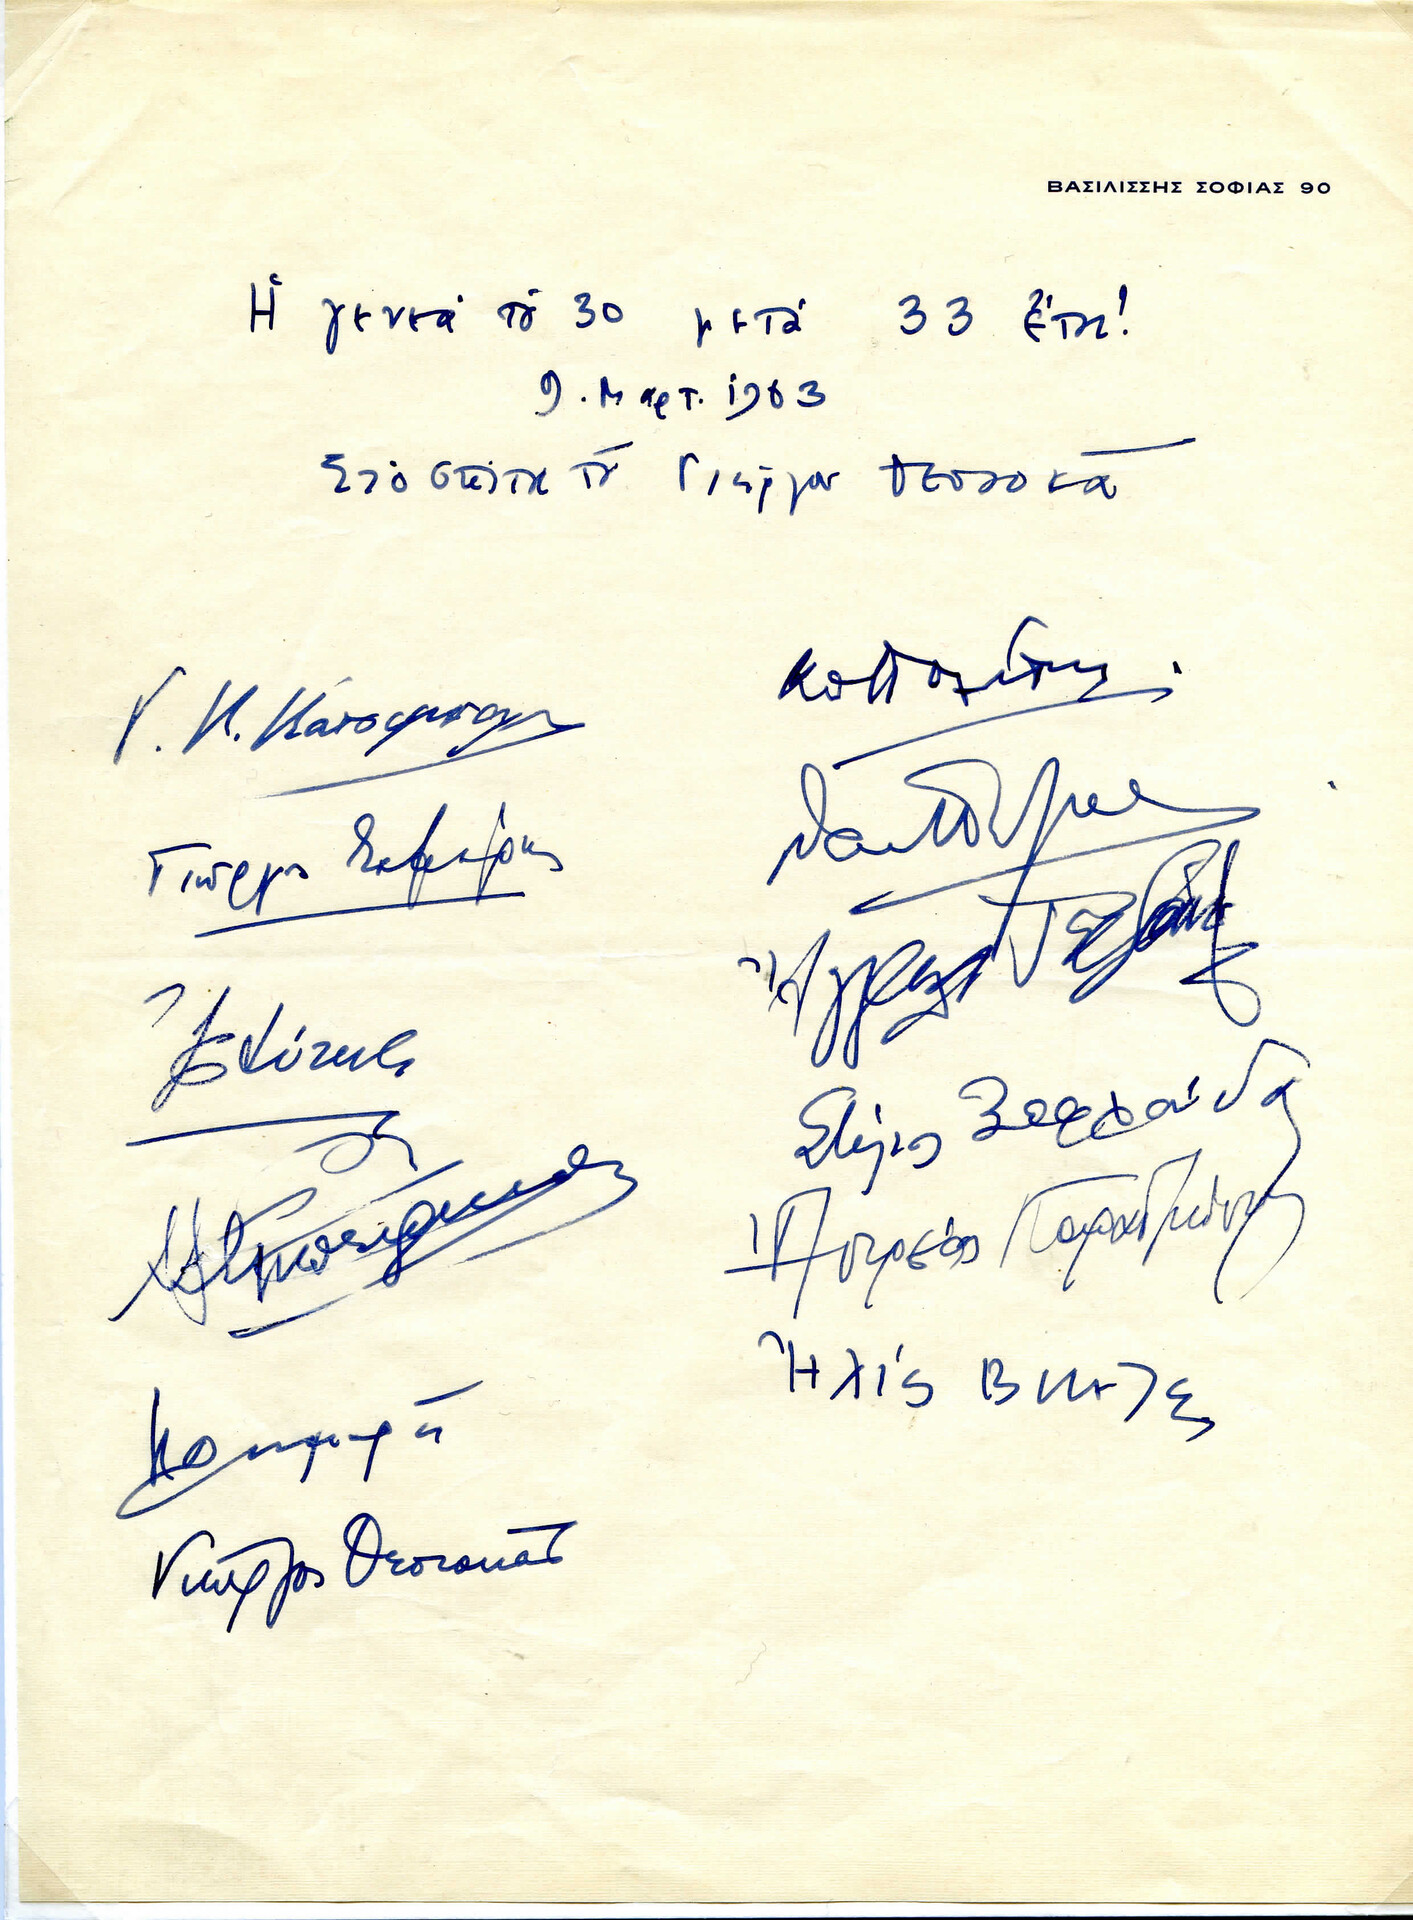 ΒΑΣΙΛΙΣΣΗΣ ΣΟΦΙΑΣ 90
Ἡ γενεά τοῦ 30 μετά 33 ἔτη!
9. Μαρτ. 1963
Στό σπίτι τοῦ Γιώργου Θεοτοκᾶ
Γ. Κ. Κατσίμπαλης
Γιώργος Σεφέρης
Ἐλύτης
Καραγάτσης
Γιώργος Θεοτοκᾶς
Κ. Πολίτης
Ἄγγελος Τερζάκης
Στέλιος Ξεφλούδας
Ἀντρέας Καραντώνης
Ἠλίας Βενέζης